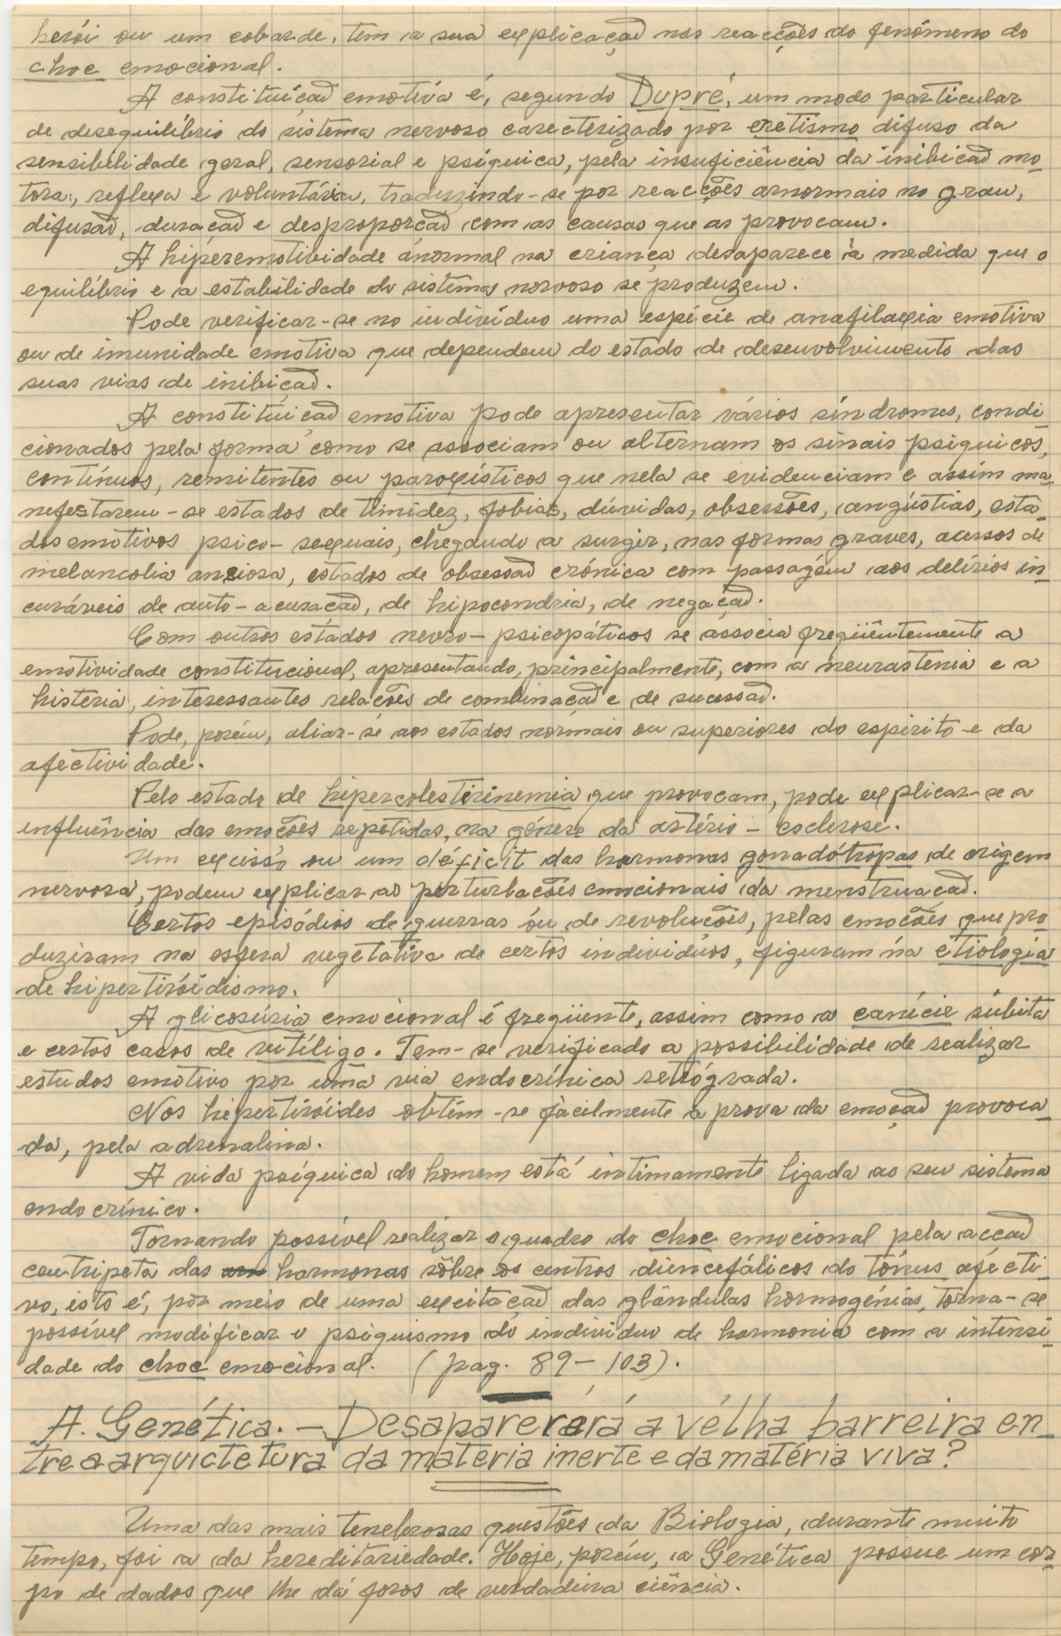 herói ou um cobarde, tem a sua explicação nas reacções do fenómeno do
choc emocional.
A constituïção emotiva é, segundo Dupré, um modo particular
de desequilíbrio do sistema nervoso caracterizado por eretismo difuso da
sensibilidade geral, sensorial e psíquica, pela insuficiência da inibição mo-
tora, reflexa e voluntária, traduzindo-se por reacções anormais no grau,
difusão, duração e desproporção com as causas que as provocam.
A hiperemotividade anormal na criança desaparece à medida que o
equilíbrio e a estabilidade do sistema nervoso se produzem.
Pode verificar-se no indivíduo uma espécie de anafilaxia emotiva
ou de imunidade emotiva que dependem do estado de desenvolvimento das
suas vias de inibição.
A constituïção emotiva pode apresentar vários síndromes, condi-
cionados pela forma como se associam ou alternam os sinais psíquicos,
contínuos, remitentes ou paroxísticos que nela se evidenciam e assim ma-
nefestarem-se estados de timidez, fobias, dúvidas, obsessões, angústias, esta-
dos emotivos psico-sexuais, chegando a surgir, nas formas graves, acessos de
melancolia ansiosa, estados de obsessão crónica com passagem aos delírios in-
curáveis de auto-acusação, de hipocondria, de negação.
Com outros estados nevro-psicopáticos se associa freqüentemente a
emotividade constitucional, apresentando, principalmente, com a neurastenia e a
histeria, interessantes relações de combinação e de sucessão.
Pode, porém, aliar-se aos estados normais ou superiores do espírito e da
afectividade.
Pelo estado de hipercolesterinemia que provocam, pode explicar-se a
influência das emoções repetidas, na génese da artério-esclerose.
Um excesso ou um déficit das hormonas gonadótropas de origem
nervosa, podem explicar as perturbações emocionais da menstruação.
Certos episódios de guerras ou de revoluções, pelas emoções que pro-
duziram na esfera vegetativa de certos indivíduos, figuram na etiologia
de hipertiróidismo.
A glicosúria emocional é freqüente, assim como a canície súbita
e certos casos de vitíligo. Tem-se verificado a possibilidade de realizar
estudos emotivo por uma via endocrínica retrógrada.
Nos hipertiróides obtém-se facilmente a prova da emoção provoca-
da, pela adrenalina.
A vida psíquica do homem está intimamente ligada ao seu sistema
endocrínico.
Tornando possível realizar o quadro do choc emocional pela acção
centrípeta das hormonas sôbre os centros diencefálicos do tónus afecti-
vo, isto é, por meio de uma excitação das glândulas hormogénias, torna-se
possível modificar o psiquismo do indivíduo de harmonia com a intensi-
dade do choc emocional. (pag. 89-103).
A Genética. - Desaparererá a vélha barreira en-
tre a arquictetura da matéria inerte e da matéria viva?
Uma das mais tenebrosas questões da Biologia, durante muito
tempo, foi a da hereditariedade. Hoje, porém, a Genética possue um cor-
po de dados que lhe dá foros de verdadeira ciência.